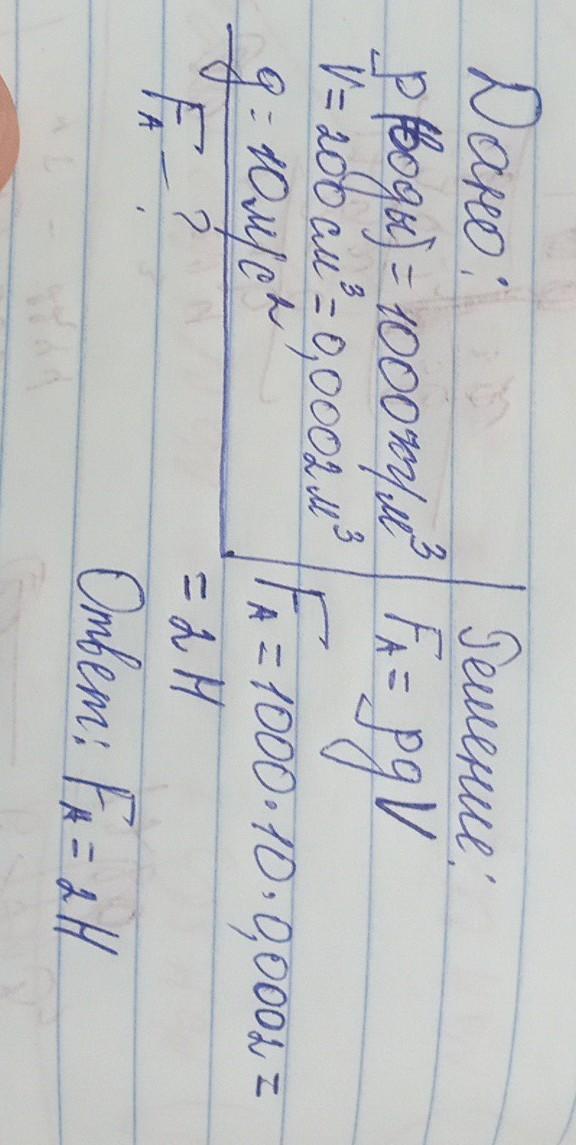 Дано:
ρ(воды) = 1000 кг/м³
V = 200 см³ = 0,0002 м³
g = 10 м/с²
F_A - ?
Решение:
F_A = ρgV
F_A = 1000 · 10 · 0,0002 =
= 2 Н
Ответ: F_A = 2 Н